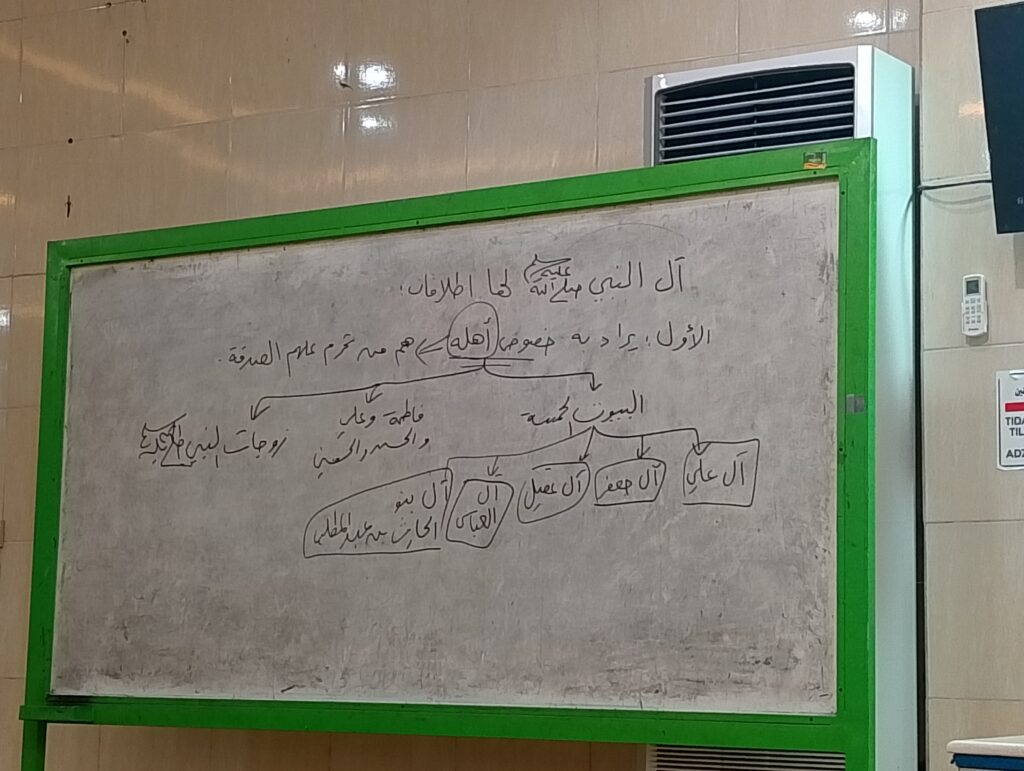 آل النبي صلى الله عليه وسلم لها اطلاقان:
الأول: يراد به خصوص أهله هم من تحرم عليهم الصدقة.
البيوت الخمسة
فاطمة وعلي
والحسن والحسين
زوجات النبي صلى الله عليه وسلم
آل علي
آل جعفر
آل عقيل
آل
العباس
آل بنو
الحارث بن عبد المطلب
TIDA
TIL
ADZ